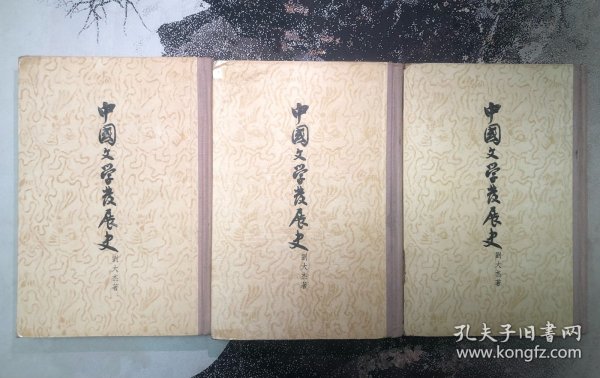 中國文学發展史
劉大杰著
中國文学發展史
劉大杰著
中國文学發展史
劉大杰著
孔夫子旧書网
www.kongfz.com